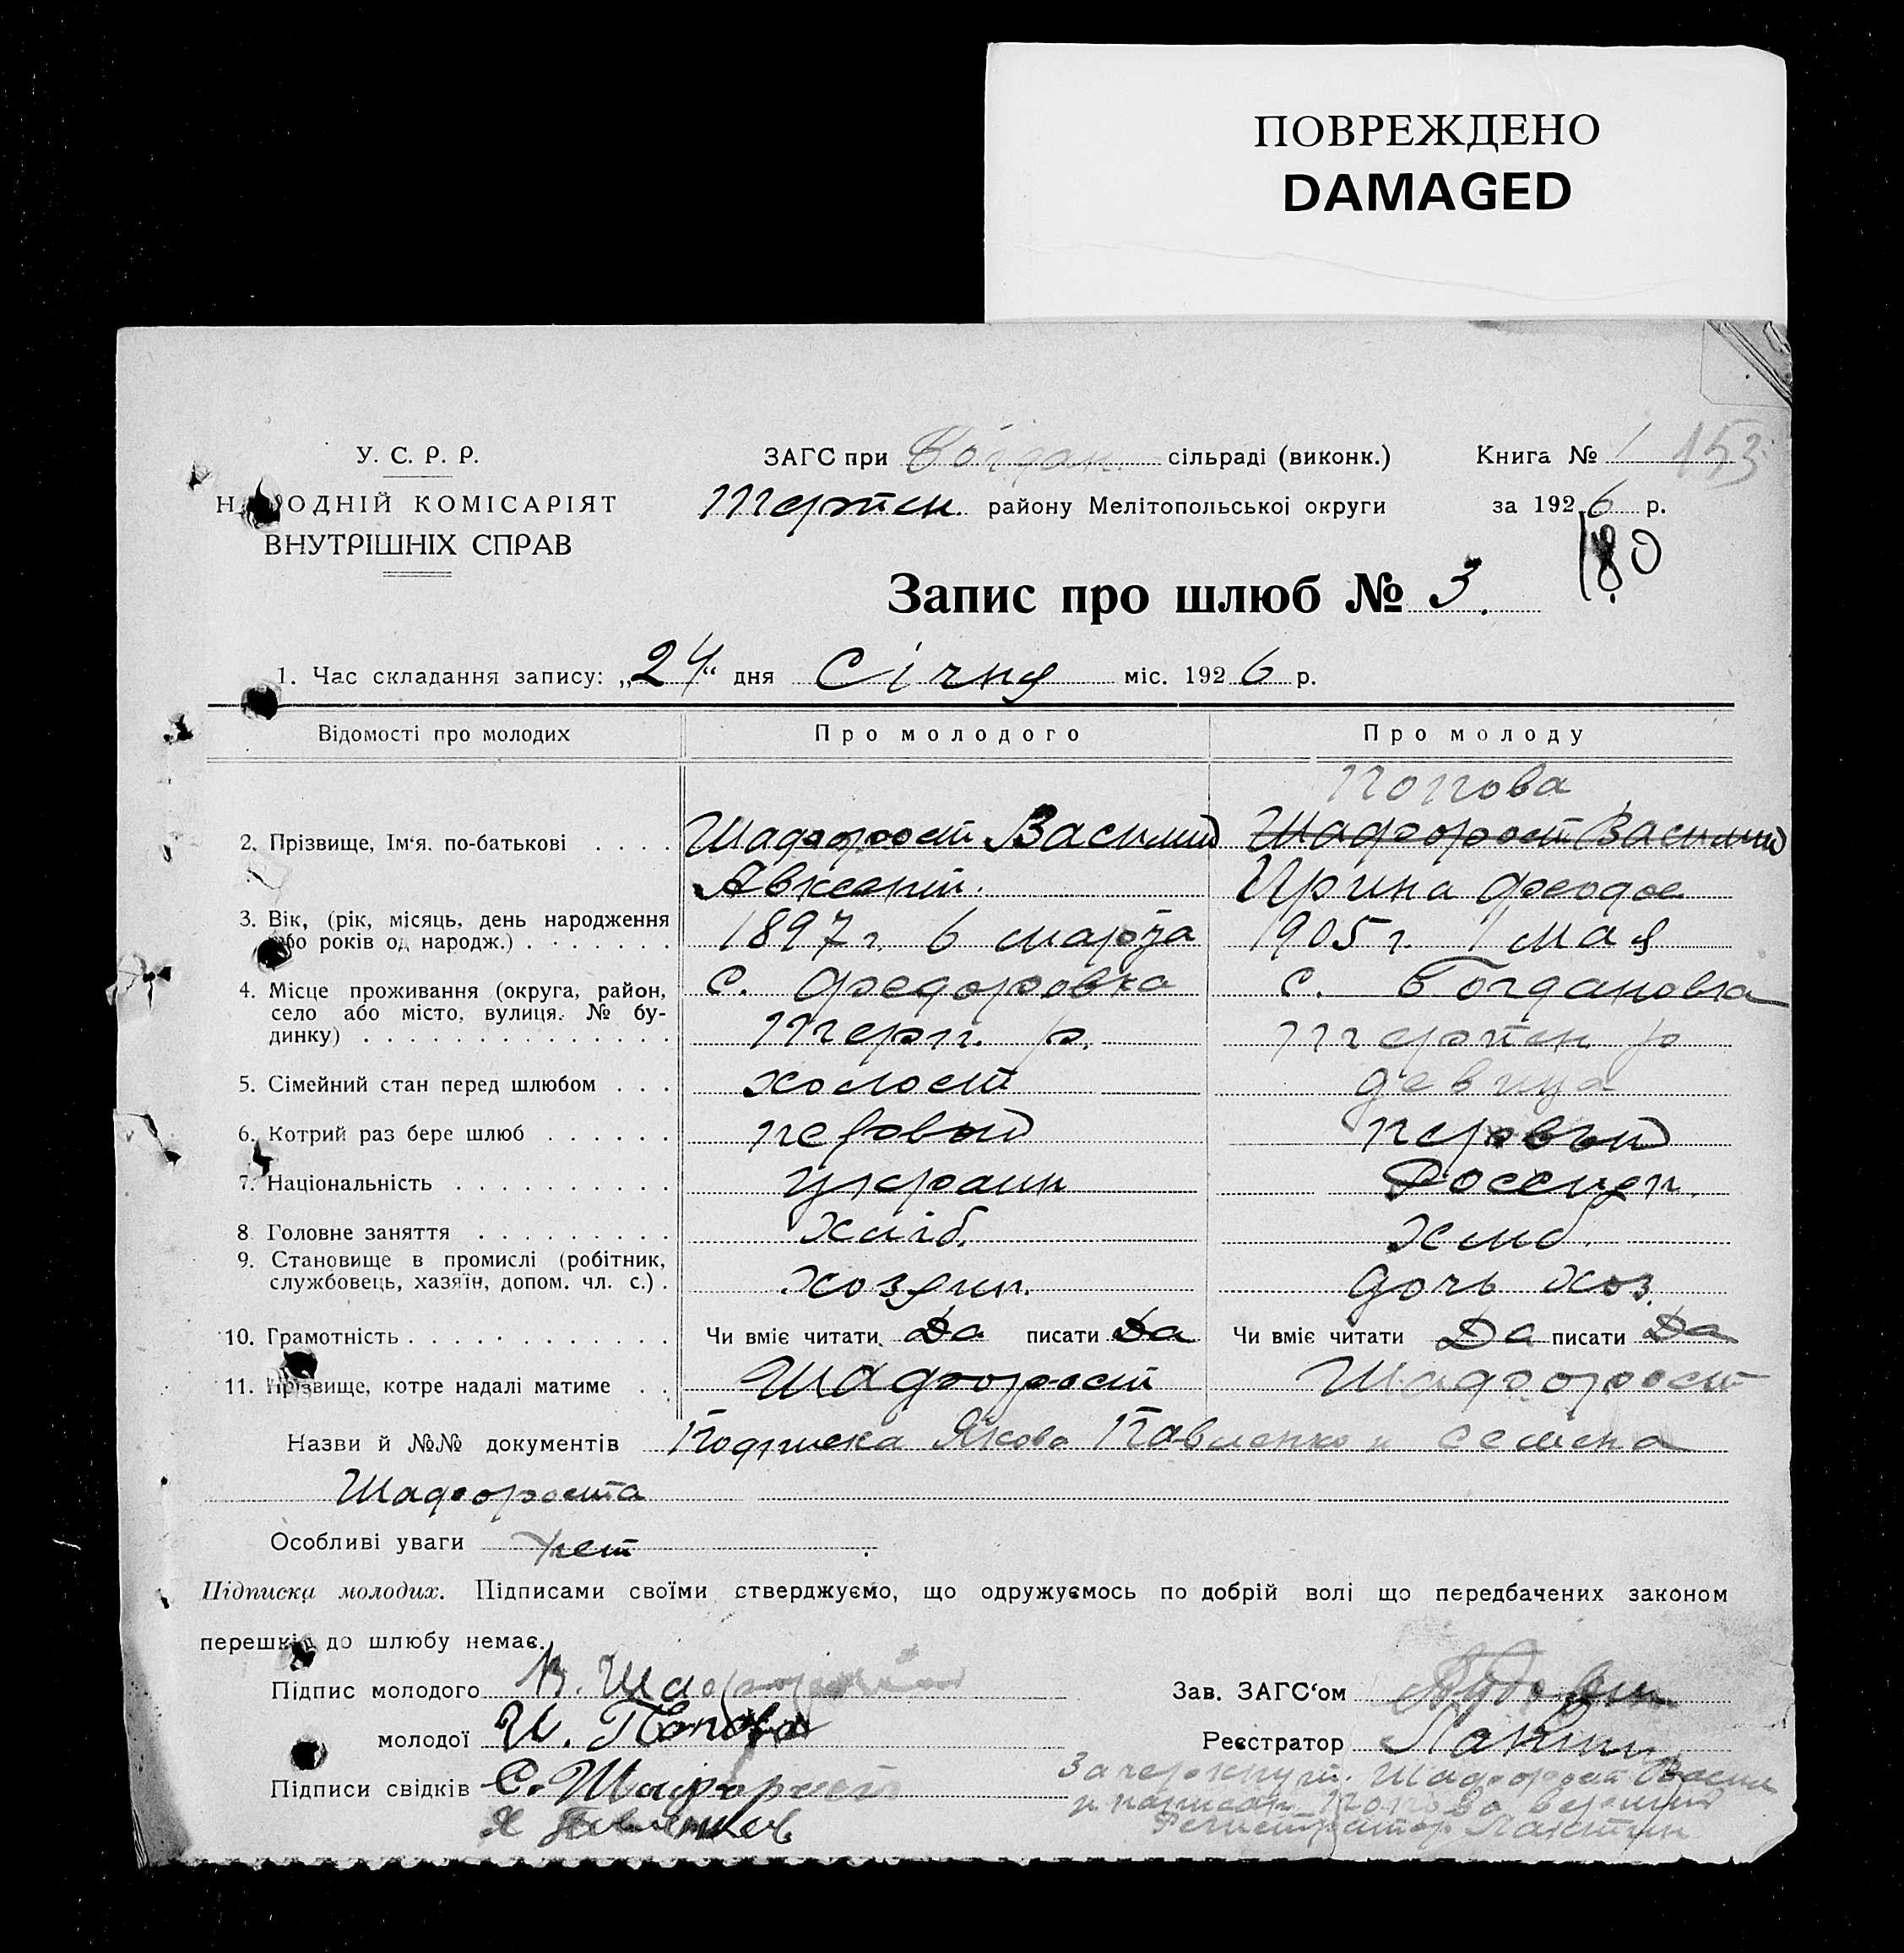 ПОВРЕЖДЕНО
DAMAGED
У. С. Р. Р.
НАРОДНІЙ КОМІСАРІЯТ
ВНУТРІШНІХ СПРАВ
ЗАГС при Богдан. сільраді (виконк.)
Терпен. району Мелітопольської округи
Книга № 1 153
за 1926 р.
180
Запис про шлюб № 3.
1. Час складання запису: „24“ дня Січня міс. 1926 р.
Відомості про молодих Про молодого Про молоду
Попова
2. Прізвище, Ім‘я. по-батькові Шафорост Василий Шафорост Василий
Авксент. Ирина Феодос
3. Вік, (рік, місяць, день народження
або років од народж.) 1897 г. 6 марта 1905 г. 1 мая
4. Місце проживання (округа, район, с. Федоровка с. Богдановка
село або місто, вулиця. № бу-
динку) Терп. р. Терпен р
5. Сімейний стан перед шлюбом холост девица
6. Котрий раз бере шлюб первый первый
7. Національність украин Россиян.
8 Головне заняття хліб. Хліб.
9. Становище в промислі (робітник,
службовець, хазяїн, допом. чл. с.) хозяин. дочь хоз.
10. Грамотність Чи вміє читати Да писати Да Чи вміє читати Да писати Да
11. Прізвище, котре надалі матиме Шафорост Шафорост
Назви й №№ документів Подписка Якова Павленко и Семена
Шафороста
Особливі уваги нет
Підписка молодих. Підписами своїми стверджуємо, що одружуємось по добрій волі що передбачених законом
перешкід до шлюбу немає.
Підпис молодого В. Шафорост
молодої И. Попова
Підписи свідків С. Шафорост
Я Павленко
Зав. ЗАГС‘ом
Реєстратор Лактин
Зачеркнут. Шафорост Васил
и написан Попова верний
Регистратор Лактин